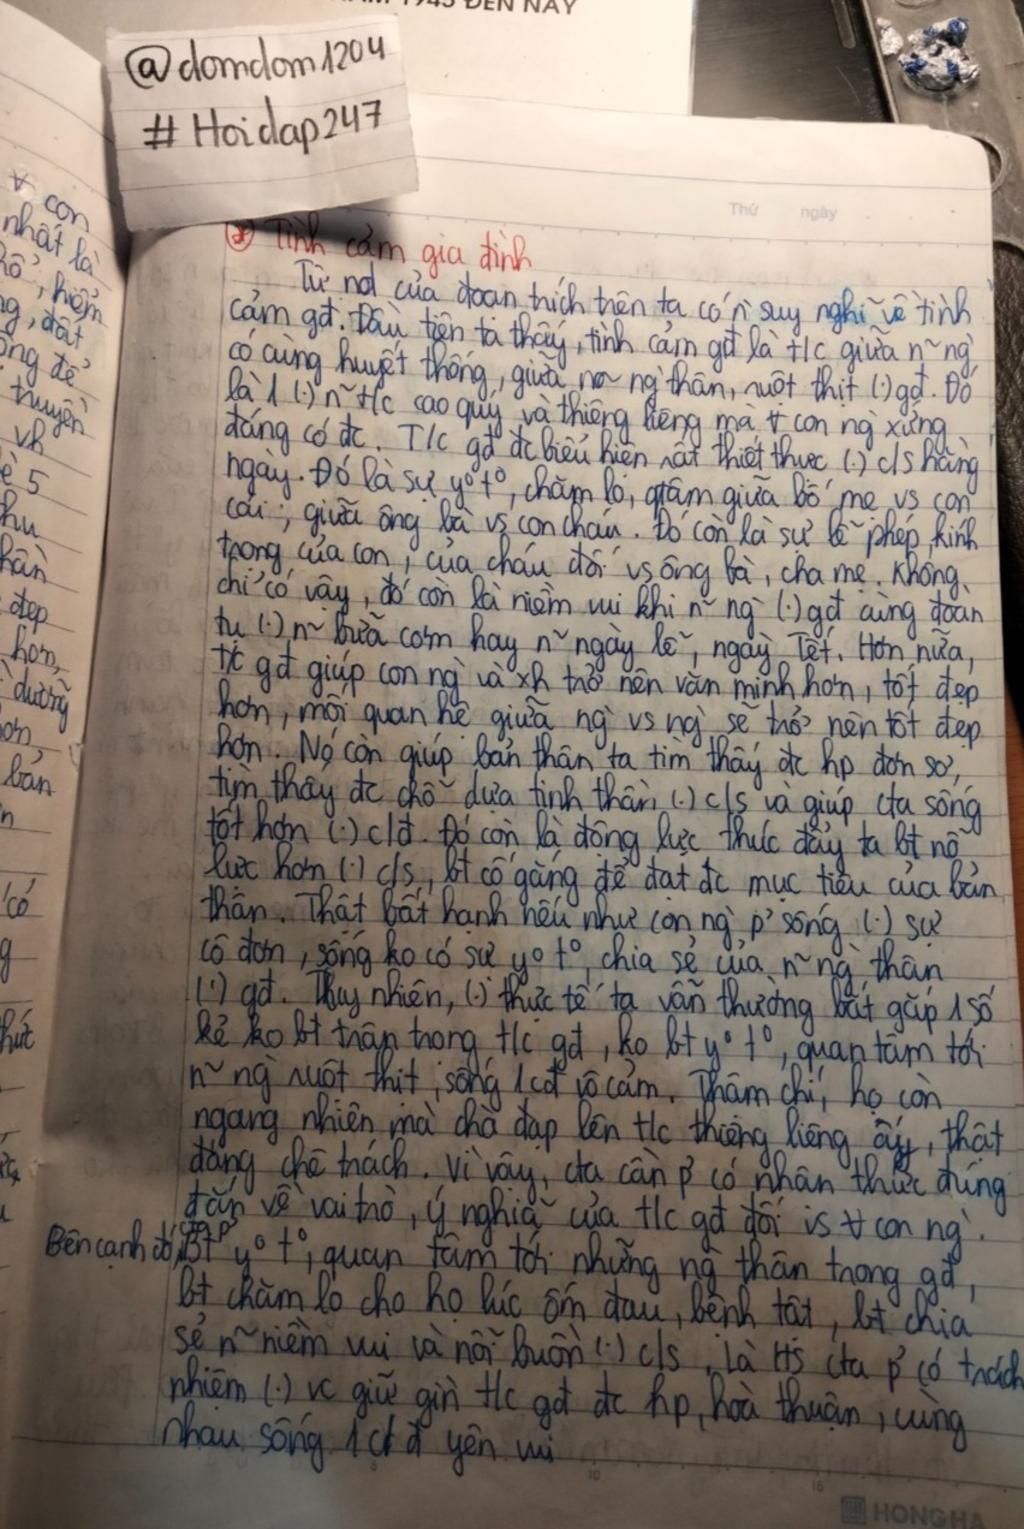 ĂM 1945 ĐẾN NAY
@domdom1204
#Hoidap247
Thứ ngày
∀ con
nhất là
hổ, hiểm
ng, đất
ông để
truyền
vh
è 5
hu
hần
đẹp
hơn,
dưỡng
ơn
bản
n
có
g
hức
* Tình cảm gia đình
Từ nd của đoạn trích trên ta có n~ suy nghĩ về tình
cảm gđ. Đầu tiên ta thấy, tình cảm gđ là t/c giữa n~ ng`
có cùng huyết thống, giữa n~ ng` thân, ruột thịt (.) gđ. Đó
là 1 (.) n~ t/c cao quý và thiêng liêng mà ∀ con ng` xứng
đáng có đc. T/c gđ đc biểu hiện rất thiết thực (.) c/s hằng
ngày. Đó là sự y° t°, chăm lo, q tâm giữa bố mẹ vs con
cái, giữa ông bà vs con cháu. Đó còn là sự lễ phép, kính
trọng của con, của cháu đối vs ông bà, cha mẹ. Không
chỉ có vậy, đó còn là niềm vui khi n~ ng` (.) gđ cùng đoàn
tụ (.) n~ bữa cơm hay n~ ngày lễ, ngày Tết. Hơn nữa,
t/c gđ giúp con ng` và xh trở nên văn minh hơn, tốt đẹp
hơn, mối quan hệ giữa ng` vs ng` sẽ trở nên tốt đẹp
hơn. Nó còn giúp bản thân ta tìm thấy đc hp đơn sơ,
tìm thấy đc chỗ dựa tinh thần (.) c/s và giúp cta sống
tốt hơn (.) c/đ. Đó còn là động lực thúc đẩy ta bt nỗ
lực hơn (.) c/s, bt cố gắng để đạt đc mục tiêu của bản
thân. Thật bất hạnh nếu như con ng` p' sống (.) sự
cô đơn, sống ko có sự y° t°, chia sẻ của n~ ng` thân
(.) gđ. Tuy nhiên, (.) thực tế ta vẫn thường bắt gặp 1 số
kẻ ko bt trân trọng t/c gđ, ko bt y° t°, quan tâm tới
n~ ng` ruột thịt, sống 1 cđ vô cảm. Thậm chí, họ còn
ngang nhiên mà chà đạp lên t/c thiêng liêng ấy, thật
đáng chê trách. Vì vậy, cta cần p' có nhận thức đúng
đắn về vai trò, ý nghĩa của t/c gđ đối vs ∀ con ng`.
Bên cạnh đó, p' bt y° t°, quan tâm tới những ng thân trong gđ,
bt chăm lo cho họ lúc ốm đau, bệnh tật, bt chia
sẻ n~ niềm vui và nỗi buồn (.) c/s. Là HS cta p' có trách
nhiệm (.) vc giữ gìn t/c gđ đc hp, hoà thuận, cùng
nhau sống 1 c/đ yên vui
HONG HA